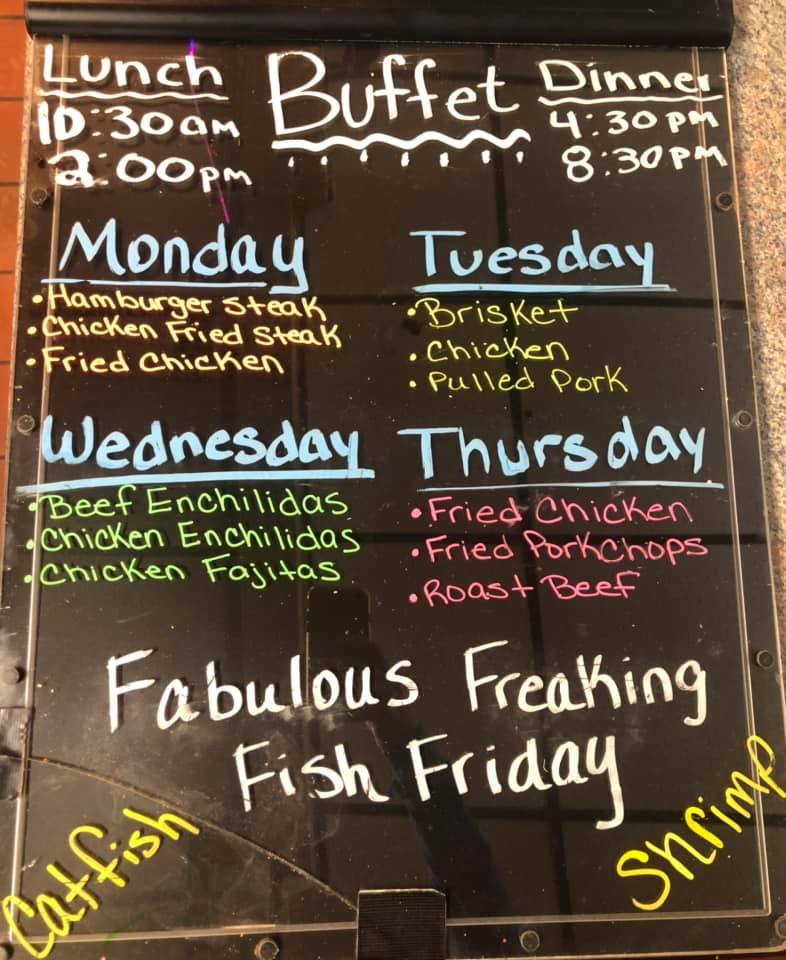 Lunch
10:30am
2:00pm
Buffet
Dinner
4:30pm
8:30pm
Monday
• Hamburger Steak
• Chicken Fried Steak
• Fried Chicken
Tuesday
• Brisket
• Chicken
• Pulled Pork
Wednesday
• Beef Enchilidas
• Chicken Enchilidas
• Chicken Fajitas
Thursday
• Fried Chicken
• Fried PorkChops
• Roast Beef
Fabulous Freaking
Fish Friday
Catfish
Shrimp